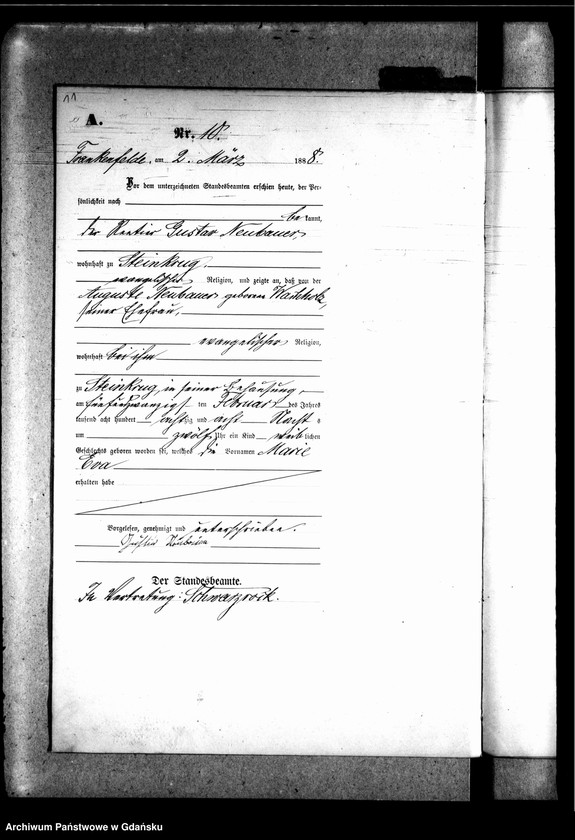 11
A.
Nr. 10.
Frankenfelde, am 2. März 1888.
Vor dem unterzeichneten Standesbeamten erschien heute, der Per-
sönlichkeit nach
bekannt,
der Rentier Gustav Neubauer,
wohnhaft zu Steinkrug,
evangelischer Religion, und zeigte an, daß von der
Auguste Neubauer geboren Wachholz,
seiner Ehefrau,
evangelischer Religion,
wohnhaft bei ihm
zu Steinkrug, in seiner Behausung,
am fünfundzwanzigsten Februar des Jahres
tausend acht hundert achtzig und acht Nachts
um zwölf Uhr ein Kind weiblichen
Geschlechts geboren worden sei, welches die Vornamen Marie
Eva
erhalten habe
Vorgelesen, genehmigt und unterschrieben.
Gustav Neubauer
Der Standesbeamte.
In Vertretung: Schwarzrock.
Archiwum Państwowe w Gdańsku